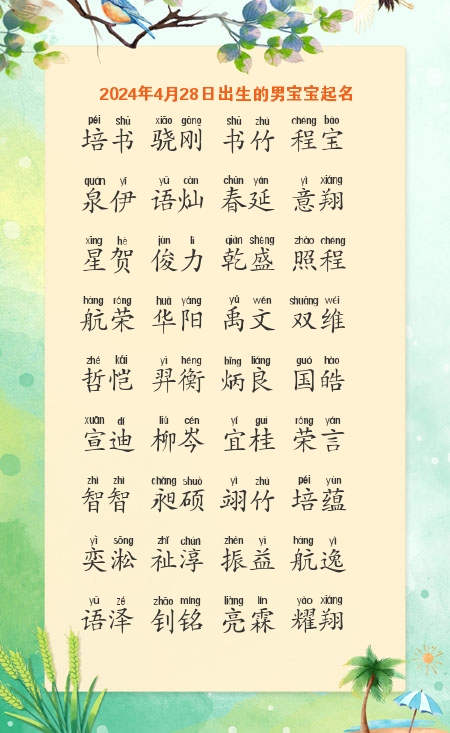 2024年4月28日出生的男宝宝起名
péi shū xiāo gāng shū zhú chéng bǎo
培书 骁刚 书竹 程宝
quán yī yǔ càn chūn yán yì xiáng
泉伊 语灿 春延 意翔
xīng hè jùn lì qián shèng zhào chéng
星贺 俊力 乾盛 照程
háng róng huá yáng yǔ wén shuāng wéi
航荣 华阳 禹文 双维
zhé kǎi yì héng bǐng liáng guó hào
哲恺 羿衡 炳良 国皓
xuān dí liǔ cén yí guì róng yán
宣迪 柳岑 宜桂 荣言
zhì zhì chǎng shuò yì zhú péi yùn
智智 昶硕 翊竹 培蕴
yì sōng zhǐ chún zhèn yì háng yì
奕淞 祉淳 振益 航逸
yǔ zé zhāo míng liàng lín yào xiáng
语泽 钊铭 亮霖 耀翔